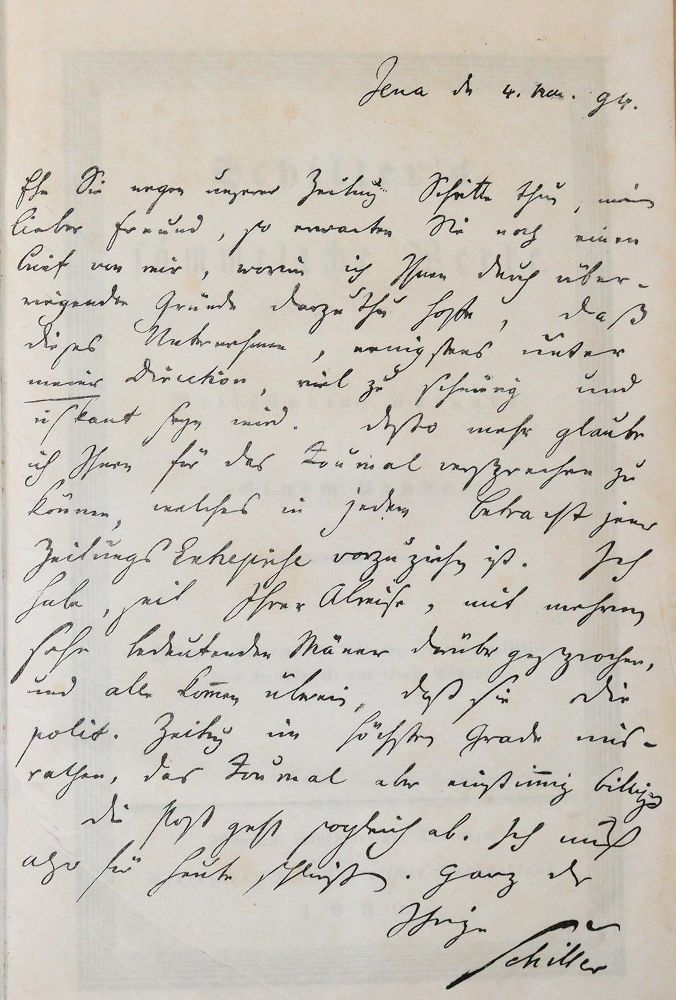 Jena den 4. Nov. 94.
Ehe Sie wegen unserer Zeitung Schritte thun, mein
lieber Freund, so erwarten Sie noch einen
Brief von mir, worinn ich Ihnen durch über-
wiegende Gründe darzuthun hoffe, daß
dieses Unternehmen, wenigstens unter
meiner Direction, viel zu schwürig und
riskant seyn wird. Desto mehr glaube
ich Ihnen für das Journal versprechen zu
können, welches in jedem Betracht jener
Zeitungs Entreprise vorzuziehn ist. Ich
habe, seit Ihrer Abreise, mit mehrern
sehr bedeutenden Männer darüber gesprochen,
und alle kommen überein, daß sie die
polit. Zeitung im höchsten Grade mis-
rathen, das Journal aber einstimmig billigen
die Post geht sogleich ab. Ich muß
also für heute schließen. Ganz der
Ihrige
Schiller